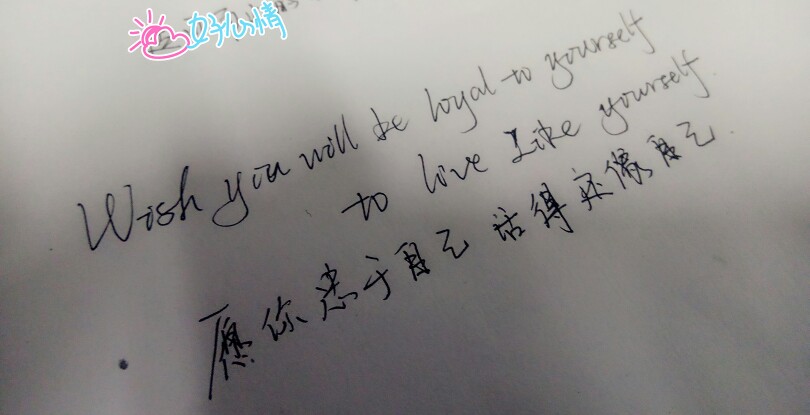 好心情
Wish you will be loyal to yourself
to love Like yourself
愿你忠于自己 活得还像自己